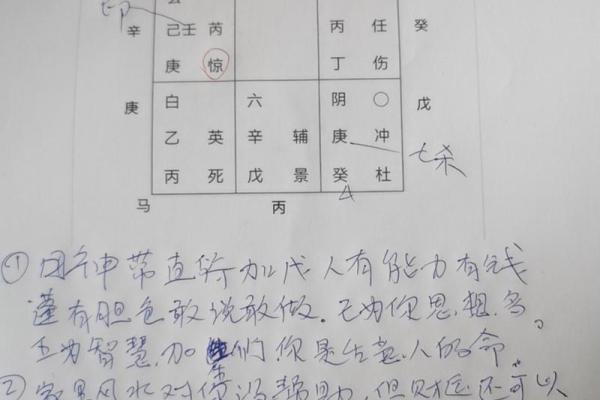 印
辛 己壬 芮 丙 任 癸
庚 惊 丁 伤
庚 白 六 阴 〇 戊
乙 英 辛 辅 庚 冲 七杀
丙 死 戊 景 癸 杜
马 丙
① 月干申带直符加戊人有能力有钱
有胆色敢说敢做。壬为你思想多。
壬为智慧,加 们你是生意人的命
② 家里风水对你没帮助,但财运还可以